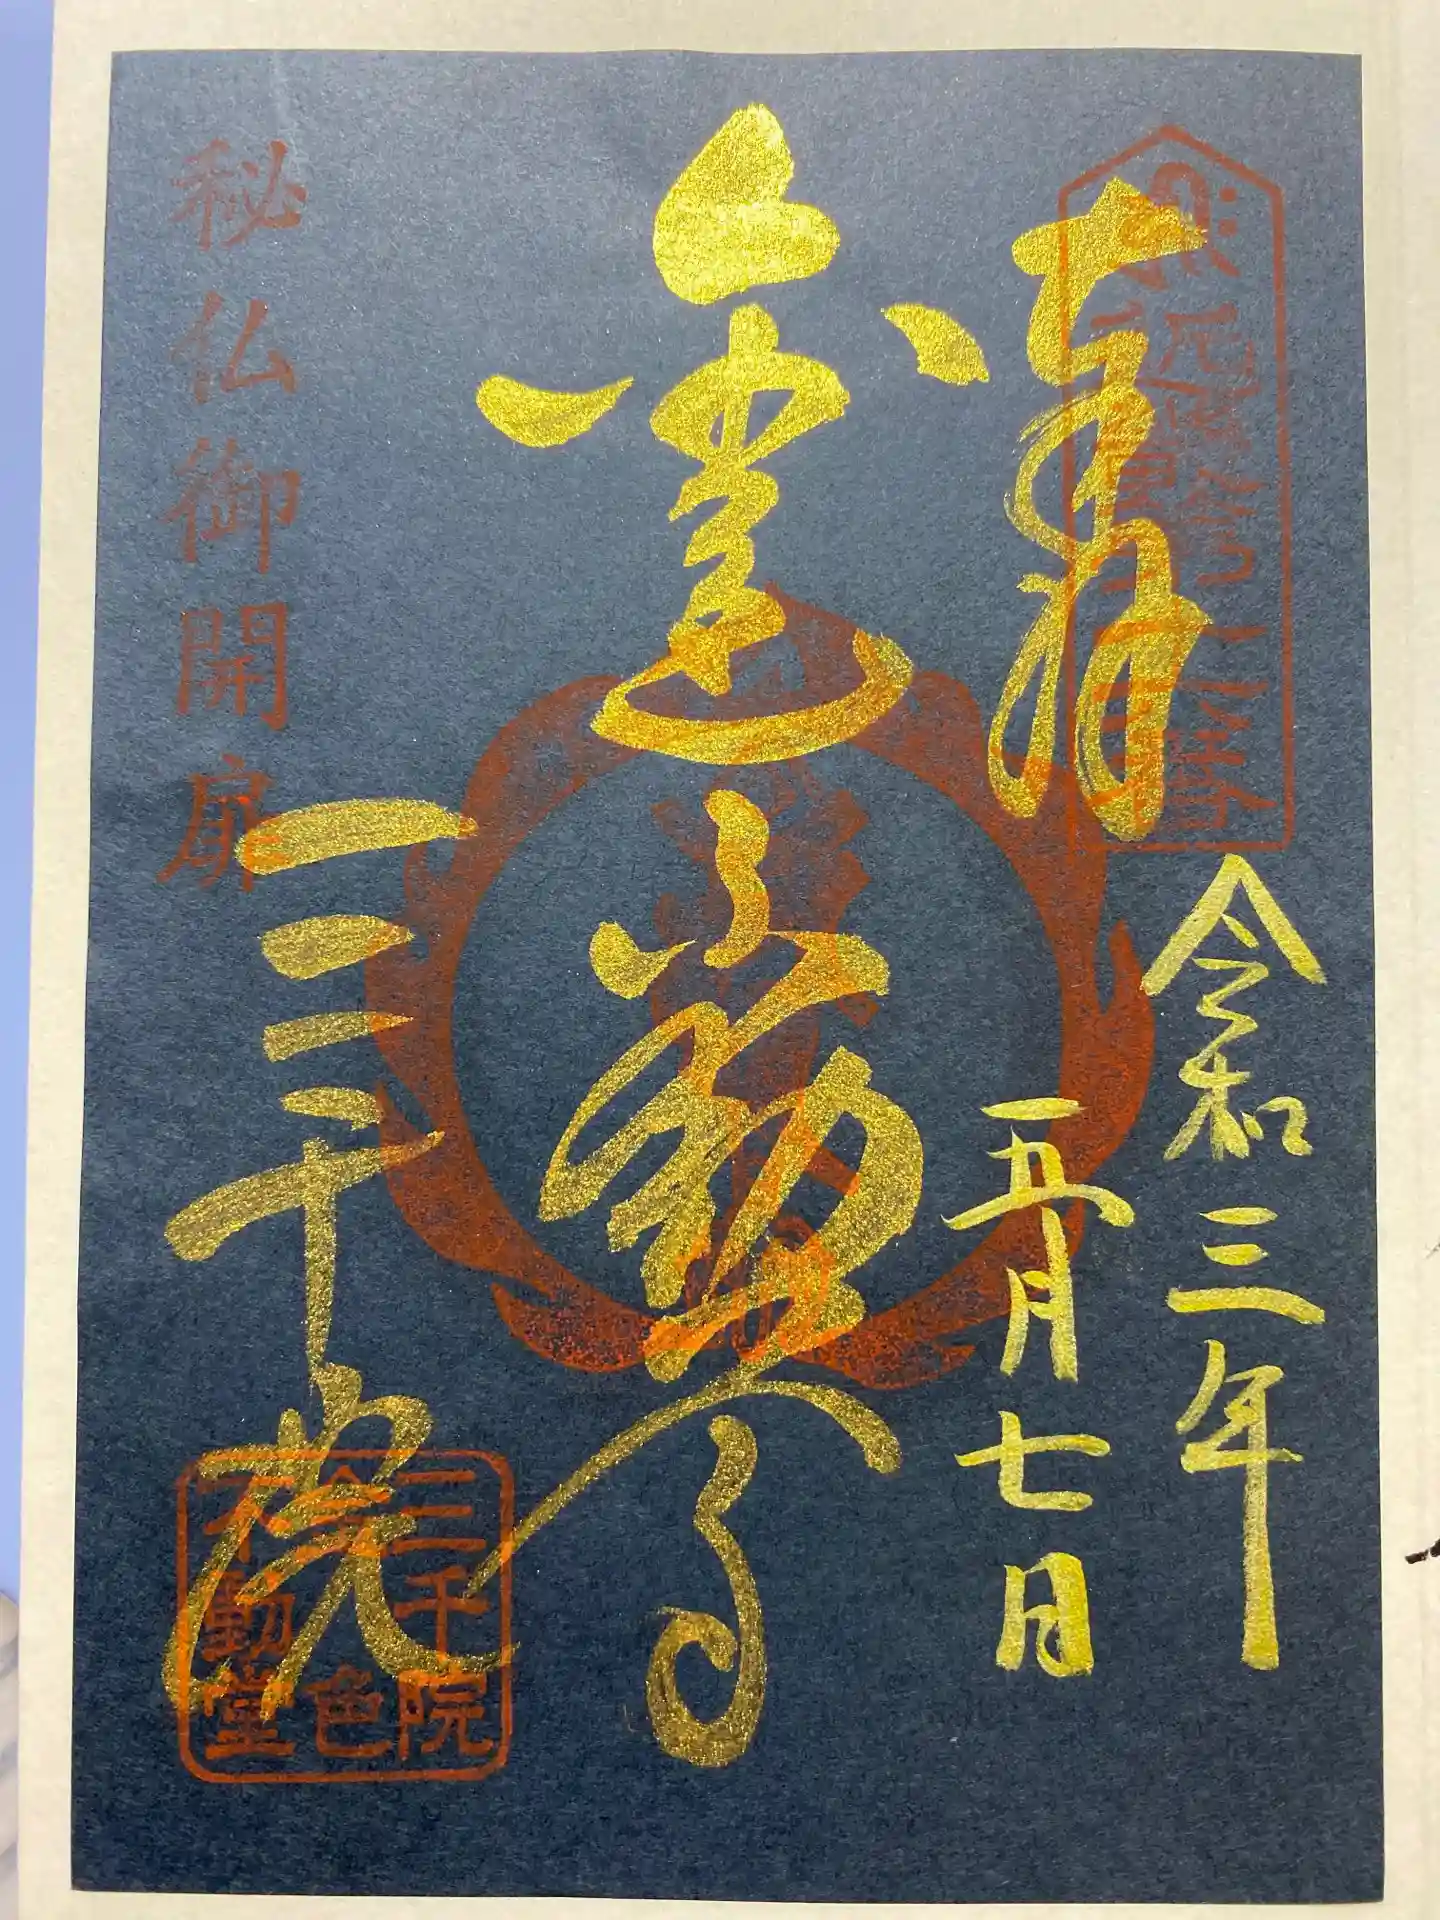 奉拝
令和三年
五月七日
金色不動尊
三千院
秘仏御開扉
三千院
金色
不動堂